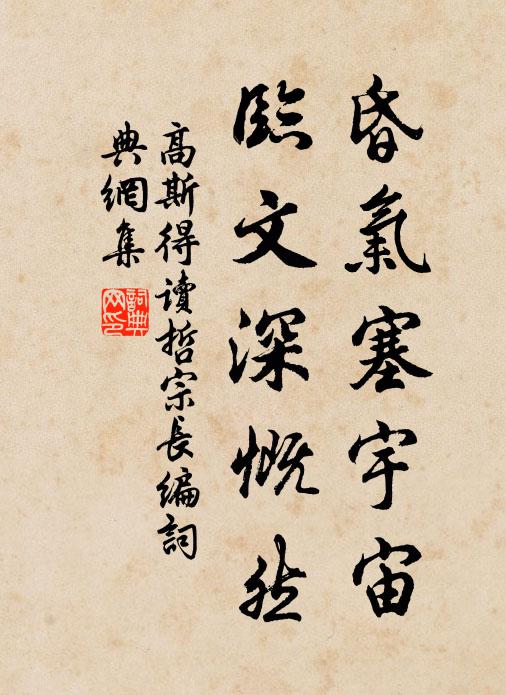 昏氣塞宇宙
臨文深慨然
高斯得讀哲宗長編詞
典網集
詞典网印